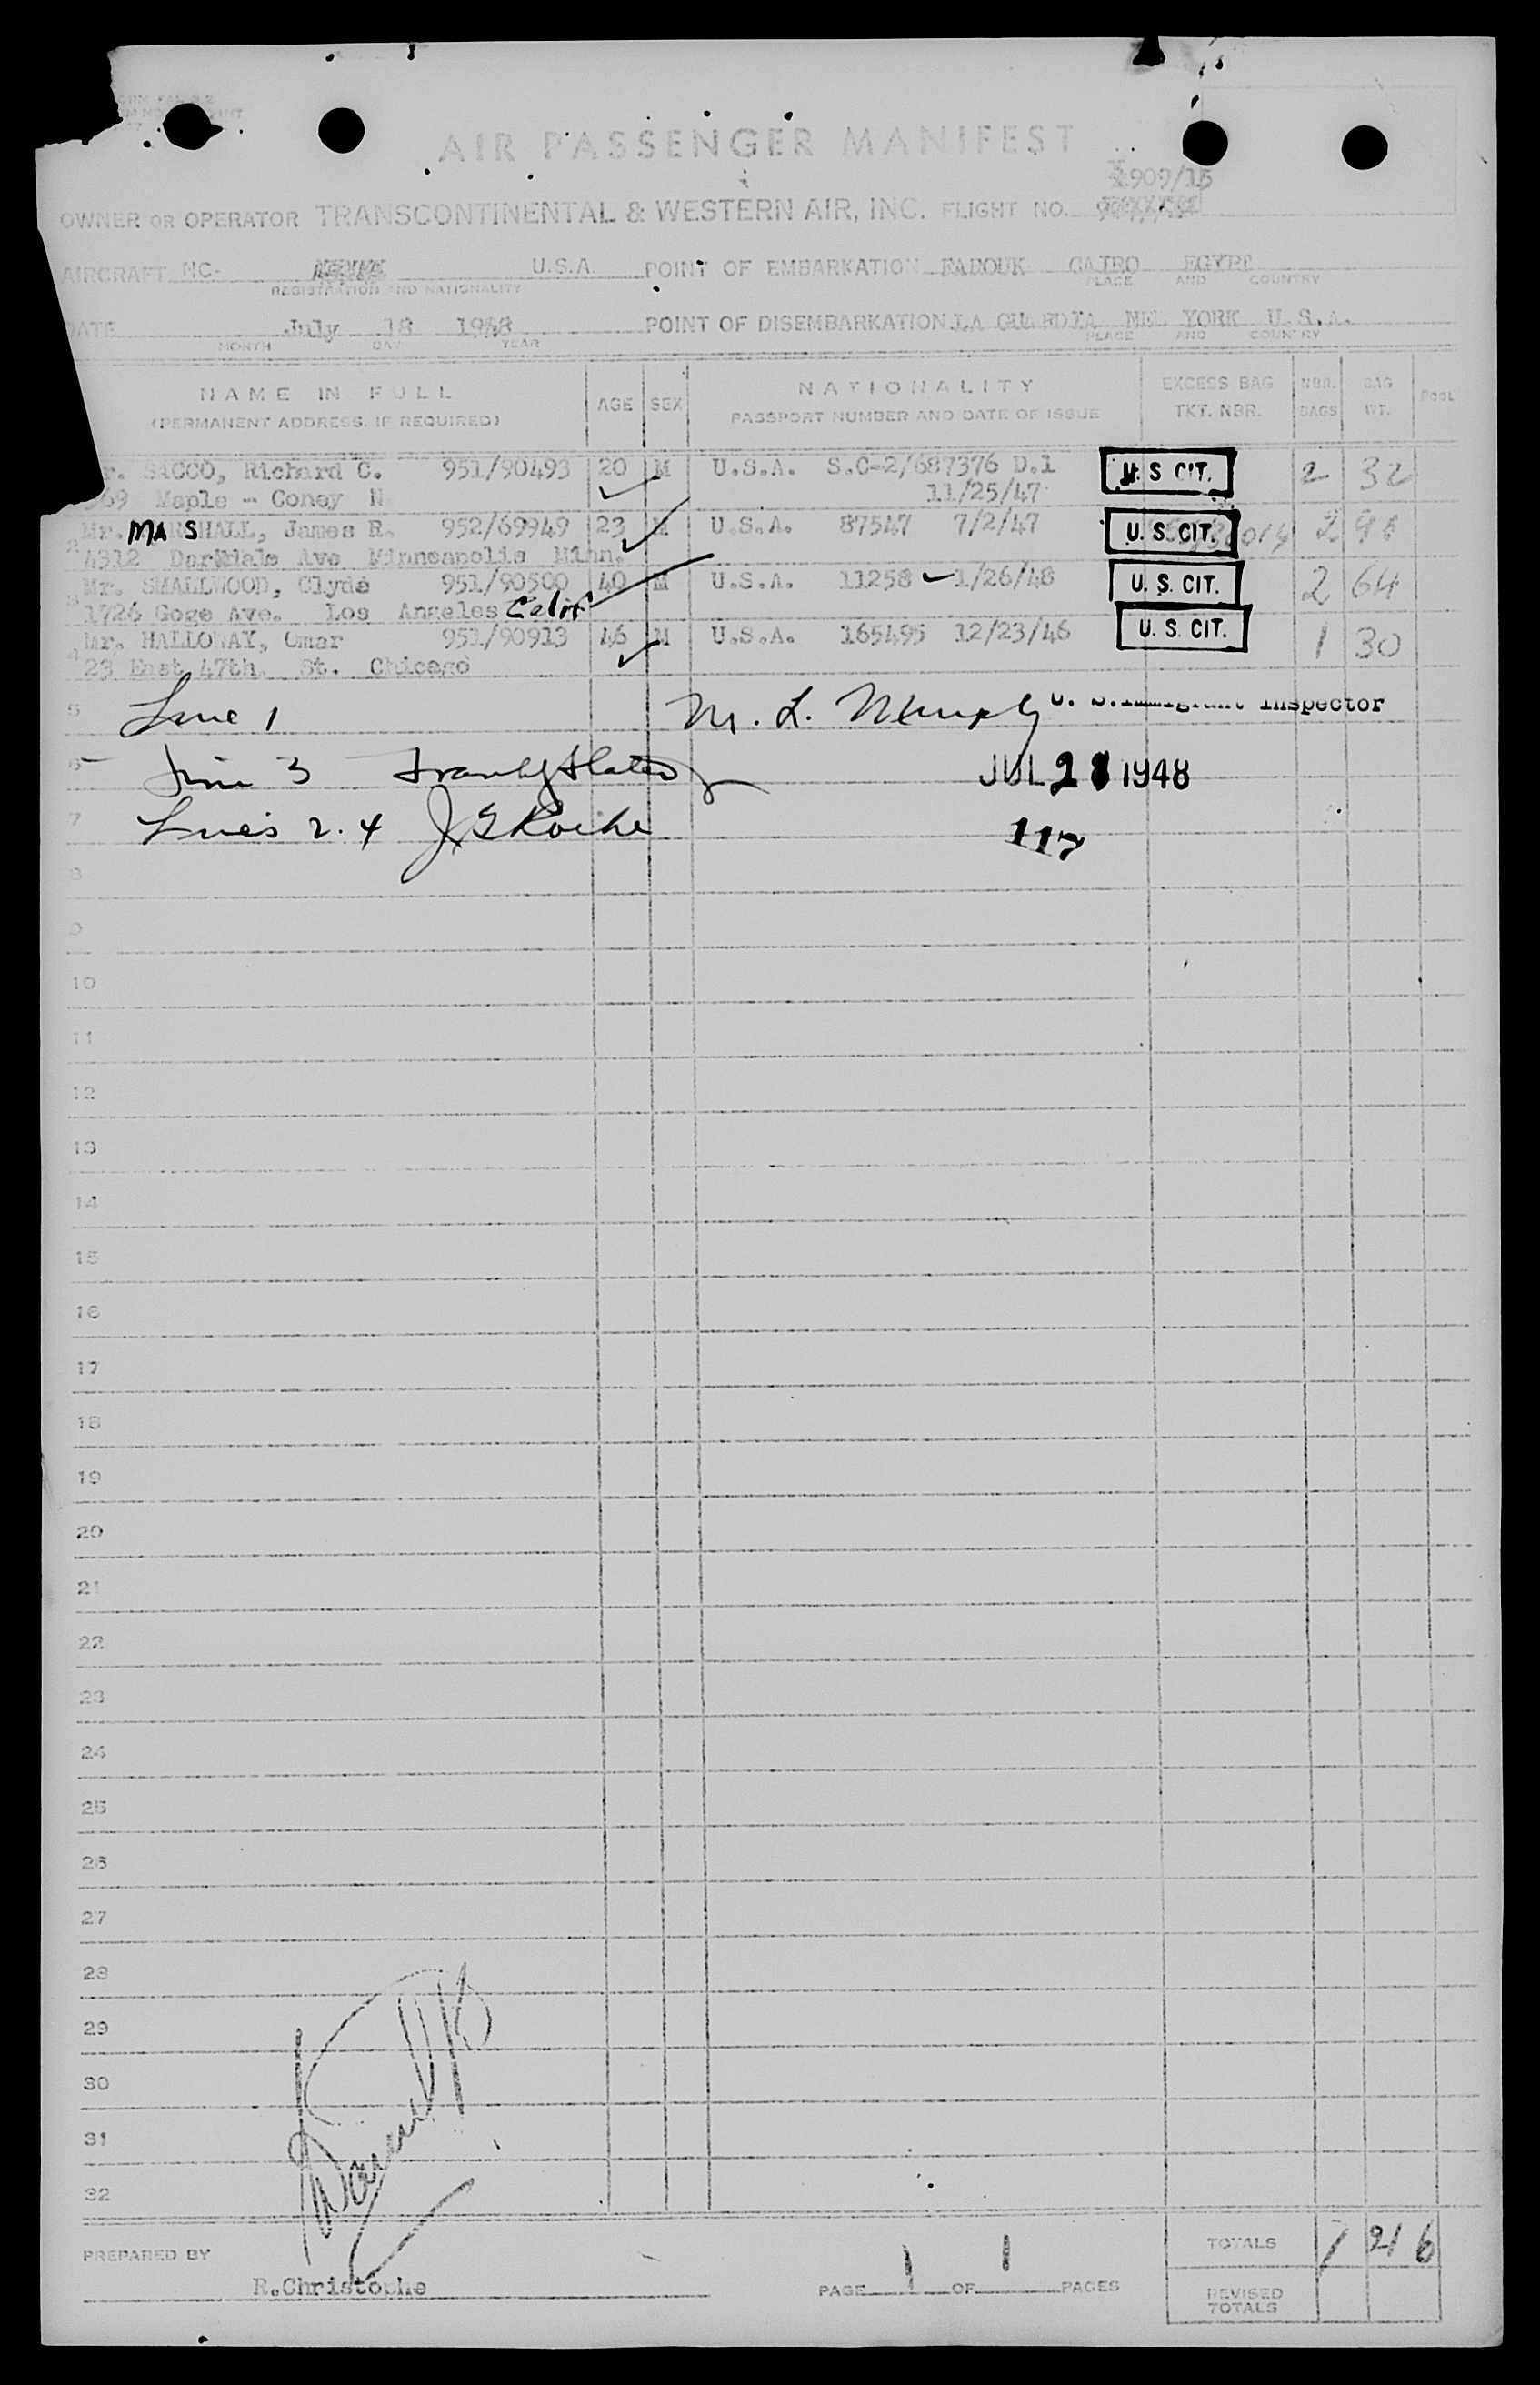 AIR PASSENGER MANIFEST
1909/15
OWNER OR OPERATOR TRANSCONTINENTAL & WESTERN AIR, INC. FLIGHT NO.
AIRCRAFT NC- U.S.A. POINT OF EMBARKATION FAROUK CAIRO EGYPT
REGISTRATION AND NATIONALITY PLACE AND COUNTRY
DATE July 18 1948 POINT OF DISEMBARKATION LA GUARDIA NEW YORK U.S.A.
MONTH DAY YEAR PLACE AND COUNTRY
NAME IN FULL AGE SEX NATIONALITY EXCESS BAG NBR. BAG POOL
(PERMANENT ADDRESS, IF REQUIRED) PASSPORT NUMBER AND DATE OF ISSUE TKT. NBR. BAGS WT.
SACCO, Richard C. 951/90493 20 M U.S.A. S.C-2/687376 D.1 U. S CIT. 2 32
69 Maple - Coney 11/25/47
2 Mr. MARSHALL, James R. 952/69949 23 M U.S.A. 87547 7/2/47 U. S. CIT. 2
4312 Ave Minneapolis Minn.
3 Mr. SMALLWOOD, Clyde 951/90500 40 M U.S.A. 11258 1/26/48 U. S. CIT. 2 64
1726 Goge Ave. Los Angeles Calif
4 Mr. HALLOWAY, Omar 951/90913 46 M U.S.A. 165495 12/23/46 U. S. CIT. 1 30
23 East 47th. St. Chicago
5 Line 1 M. L. U. S. Immigrant Inspector
6 Line 3 JUL 21 1948
7 Lines 2. 4 J G Roche 117
8
9
10
11
12
13
14
15
16
17
18
19
20
21
22
23
24
25
26
27
28
29
30
31
32
PREPARED BY TOTALS 7 216
R.Christophe PAGE 1 OF 1 PAGES
REVISED
TOTALS